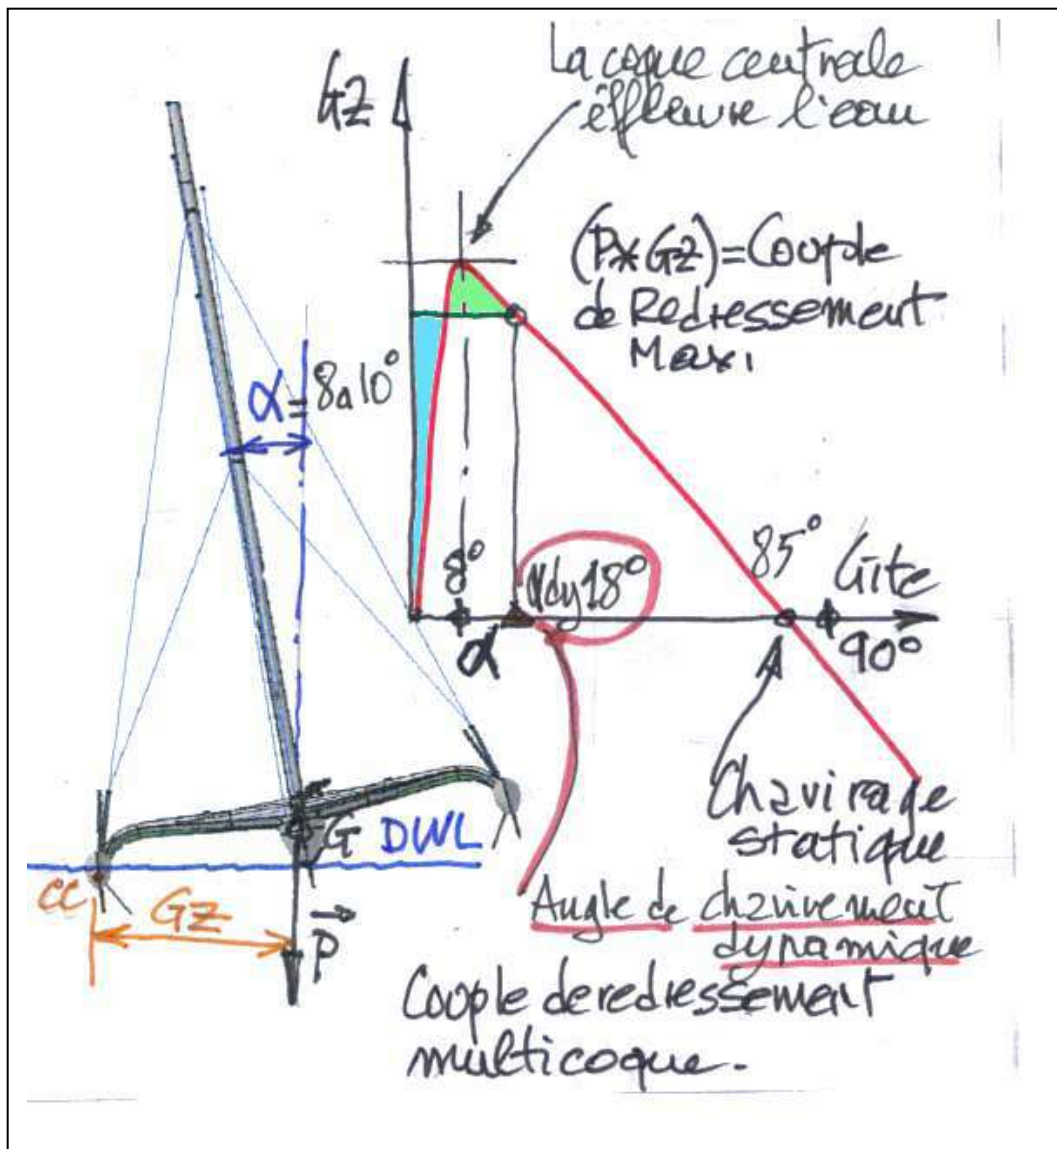 La coque centrale
éffleure l'eau
GZ
(P*GZ)=Couple
de Redressement
Maxi
α = 8à10°
8°
αdy18°
85°
Gîte
α
90°
Chavirage
statique
G
DWL
CC
GZ
P
Angle de chavirement
dynamique
Couple de redressement
multicoque.